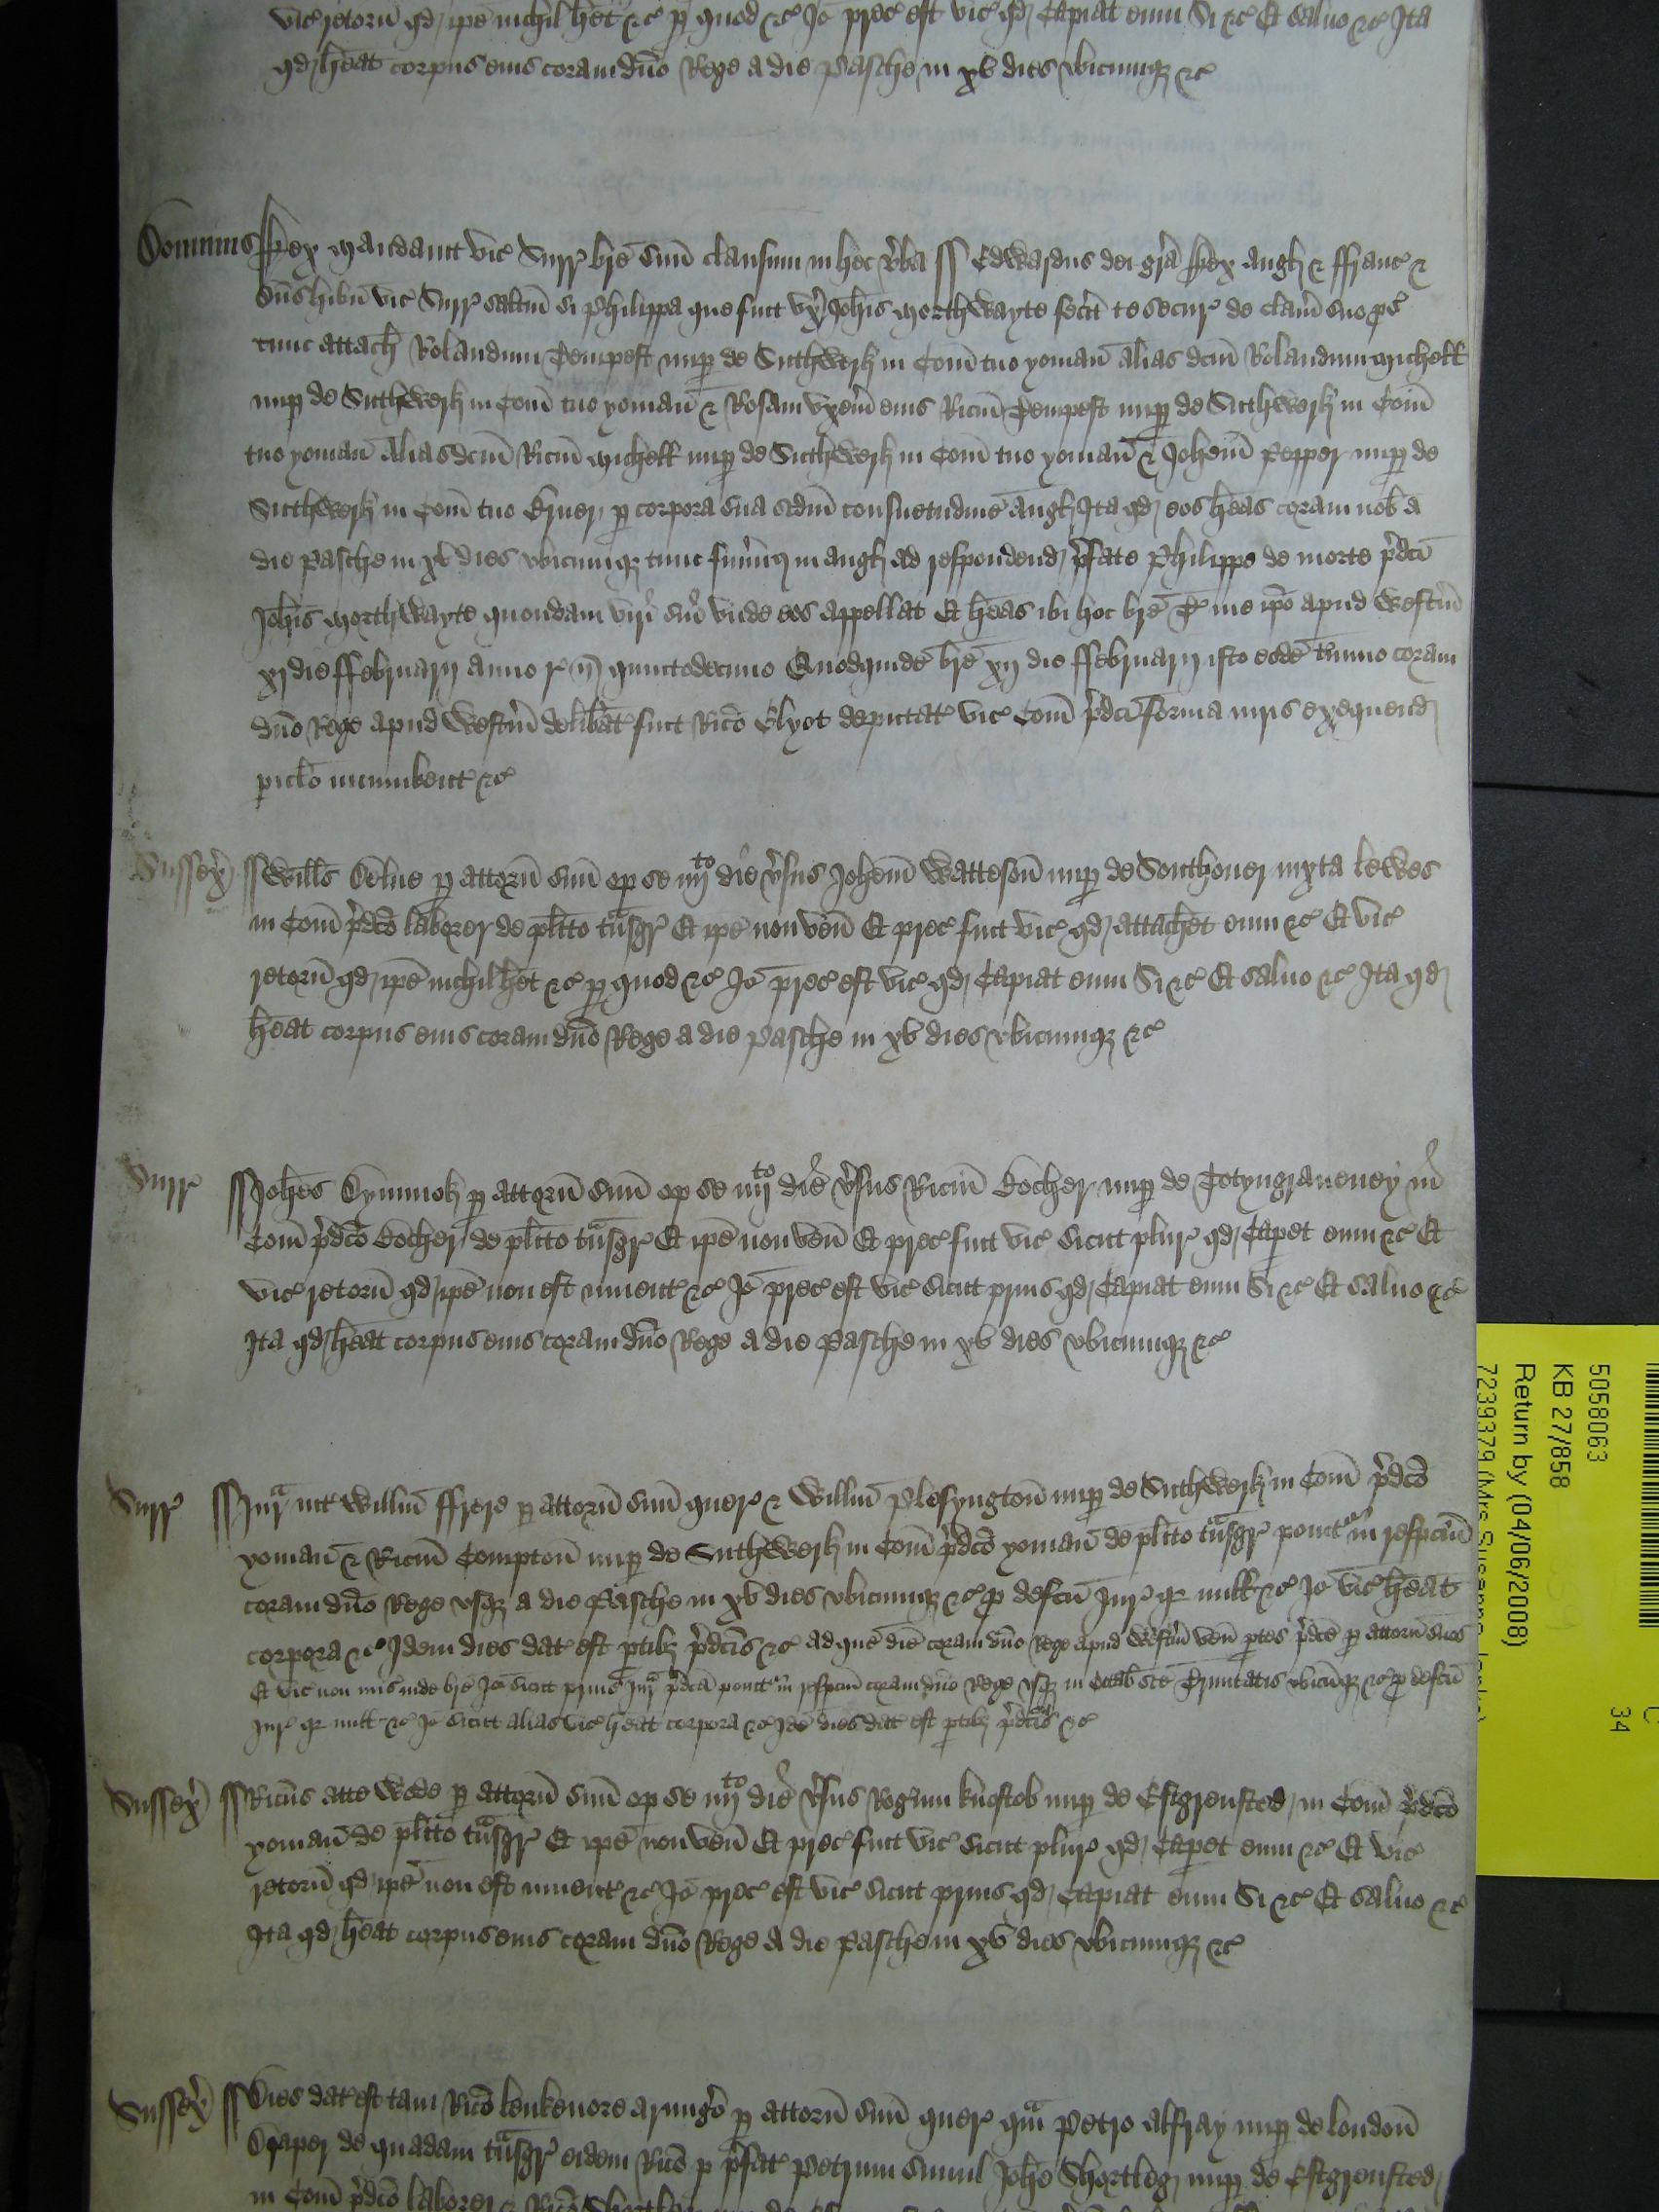 vic' retorn̄ qd' ip̄e nichil h̄et &c' p quod &c' Jō prec' est vic' qd' Capiat eum Si &c' Et saluo &c' Ita
qd' h̄eat corpus eius coram dn̄o Rege a die Pasche in xv dies vbicumq; &c'
Dominus Rex mandauit vic' Surr' br̄e suu clausum in hec v'ba ss Edwardus dei grā Rex Angl' & ffranc' &
dn̄s hib'n vic' Surr' salt̄m Si Philippa que fuit vx' Joh̄is Morthwayte fec'it te secur' de clam̄ suo ps'
tunc attach' Rolandum Tempest nup de Suthwerk in Com̄ tuo yoman̄ alias dc̄m Rolandum Michell
nup de Suthwerk in Com̄ tuo yoman̄ & Rosam vxem̄ eius Ric̄m Tempest nup de Suthwerk in Com̄
tuo yoman̄ Alias dc̄m Ric̄m Michell nup de Suthwerk in Com̄ tuo yoman̄ & Joh̄em Pepper nup de
Suthwerk in Com̄ tuo Bruer p corpora sua scdm̄ consuetudinē Angl' Ita qd' eos h̄eas coram nob̄ a
die Pasche in xv dies vbicumq; tunc fuim'q in Angl' ad respondend' p'fate Philippe de morte p'dc̄i
Joh̄is Morthwayte quondam viri sui vnde eos appellat Et h̄eas ibi hoc br̄e T' me ip̄o apud Westm̄
xj die ffebruarij anno r' n' quintodecimo Quodquidē br̄e xij die ffebruarij isto eodē t'mino coram
dn̄o Rege apud Westm̄ delib'at' fuit Ric̄o Elyot deputat' vic' Com̄ p'dc̄i forma iuris exequend'
piclo incumbent' &c'
Sussex' ss Will̄s Delue p attorn̄ suu op se iiijto die v'sus Joh̄em Watteson̄ nup de Southouer iuxta Lewes
in Com̄ p'dc̄o laborer de pl̄ito tn̄sgr' Et ip̄e non ven̄ Et prec' fuit vic' qd' attach̄et eum &c' Et vic'
retorn̄ qd' ip̄e nichil h̄et &c' p quod &c' Jō prec' est vic' qd' Capiat eum Si &c' Et saluo &c' Ita qd'
h̄eat corpus eius coram dn̄o Rege a die Pasche in xv dies vbicumq; &c'
Surr' ss Joh̄es Dymmok p attorn̄ suu op se iiijto die v'sus Ric̄m Bocher nup de Totyngraueney in
Com̄ p'dc̄o Bocher de pl̄ito tn̄sgr' Et ip̄e non ven̄ Et prec' fuit vic' sicut plur' qd' Caperet eum &c' Et
vic' retorn̄ qd' ip̄e non est inuent' &c' Jō prec' est vic' sicut prius qd' Capiat eum Si &c' Et saluo &c'
Ita qd' h̄eat corpus eius coram dn̄o Rege a die Pasche in xv dies vbicumq; &c'
Surr' ss Jurᵃ int' Willm̄ ffrere p attorn̄ suu quer' & Willm̄ Plesyngton̄ nup de Suthwerk in Com̄ p'dc̄o
yoman̄ & Ric̄m Compton̄ nup de Suthwerk in Com̄ p'dc̄o yoman̄ de pl̄ito tn̄sgr' ponit' in respc̄m̄
coram dn̄o Rege vsq; a die Pasche in xv dies vbicumq; &c' p defc̄u Jur' qr null' &c' Jō vic' h̄eat
corpora &c' Idem dies dat' est ptib; p'dc̄is &c' ad quē diē coram dn̄o Rege apud Westm̄ ven̄ ptes p'dc̄e p attorn̄ suos
Et vic' non mis' inde br̄e Jō sicut prius Jurᵃ p'dc̄a ponit' in respc̄m̄ coram dn̄o Rege vsq; in Octab' sc̄e Trinitatis vbicūq; &c' p defc̄u
Jur' qr null' &c' Jō sicut alias vic' h̄eat corpora &c' Idē dies dat' est ptib; p'dc̄is &c'
Sussex' ss Ric̄us atte Wode p attorn̄ suu op se iiijto die v'sus Rog'um knostob nup de Estgrensted' in Com̄ p'dc̄o
yoman̄ de pl̄ito tn̄sgr' Et ip̄e non ven̄ Et prec' fuit vic' sicut plur' qd' Caperet eum &c' Et vic'
retorn̄ qd' ip̄e non est inuent' &c' Jō prec' est vic' sicut prius qd' Capiat eum Si &c' Et saluo &c'
Ita qd' h̄eat corpus eius coram dn̄o Rege a die Pasche in xv dies vbicumq; &c'
Sussex' ss Dies dat' est tam Ric̄o leukenore armig'o p attorn̄ suu quer' qᵃm Petro Alfray nup de london̄
Draper de quadam tn̄sgr' eidem Ric̄o p p'fat' Petrum simul Joh̄e Shortleg' nup de Estgrensted'
in Com̄ p'dc̄o laborer & Ric̄o
5058063
KB 27/858
Return by (04/06/2008)
7239379 (Mrs Susanne
34